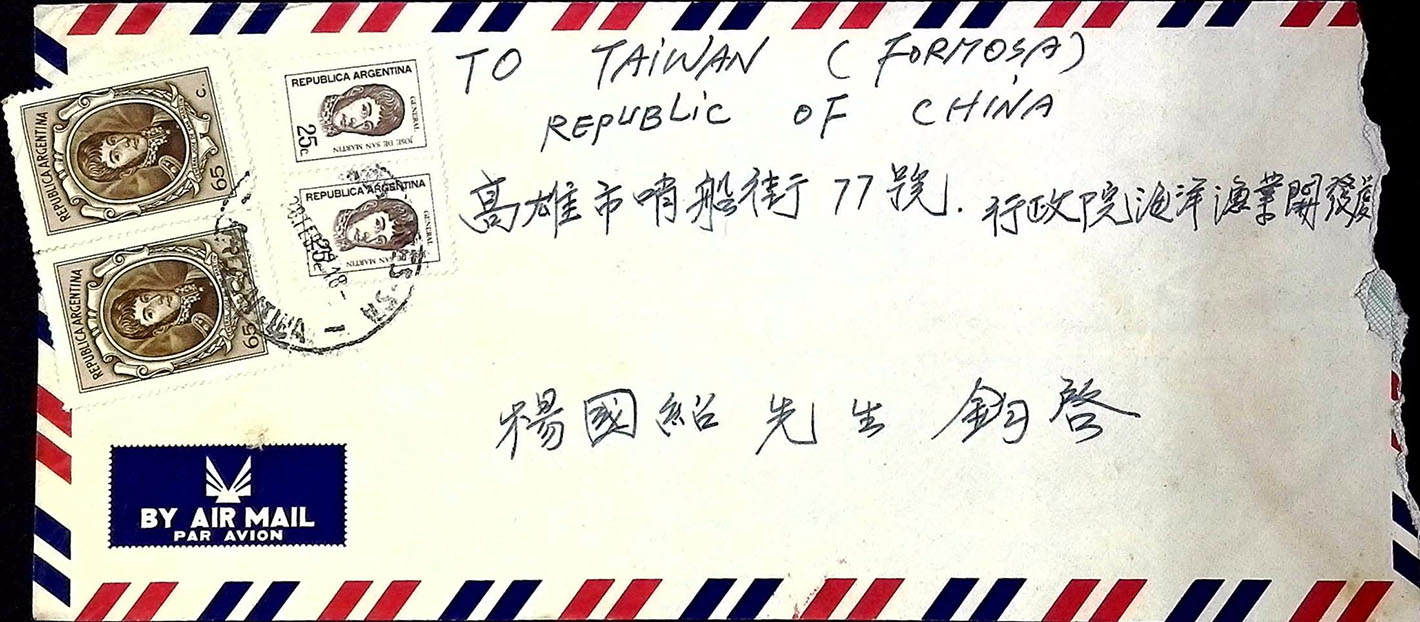 TO TAiWAN (FORMOSA)
REPUBLiC OF CHiNA
高雄市哨船街77號. 行政院海洋漁業開發
楊國紹先生 鈞啓
REPUBLICA ARGENTINA
65 C.
REPUBLICA ARGENTINA
65
REPUBLICA ARGENTINA
25c.
GENERAL
JOSE DE SAN MARTIN
REPUBLICA ARGENTINA
25c
GENERAL
SAN MARTIN
BY AIR MAIL
PAR AVION